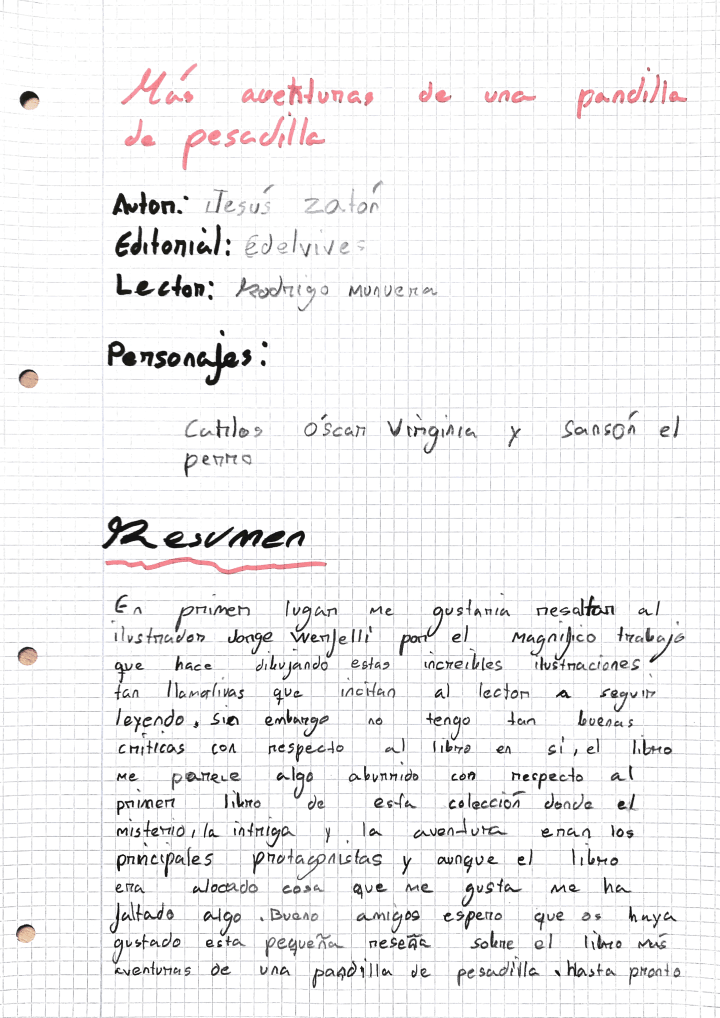 Más aventuras de una pandilla
de pesadilla
Autor: Jesús Zatón
Editorial: Edelvives
Lector: Rodrigo Munuera
Personajes:
Carlos Óscar Virginia y Sansón el
perro
Resumen
En primer lugar me gustaria resaltar al
ilustrador Jorge Werffelli por el magnifico trabajo
que hace dibujando estas increibles ilustraciones
tan llamativas que incitan al lector a seguir
leyendo, sin embargo no tengo tan buenas
críticas con respecto al libro en sí, el libro
me parece algo aburrido con respecto al
primer libro de esta colección donde el
misterio, la intriga y la aventura eran los
principales protagonistas y aunque el libro
era alocado cosa que me gusta me ha
faltado algo. Bueno amigos espero que os haya
gustado esta pequeña reseña sobre el libro más
aventuras de una pandilla de pesadilla, hasta pronto